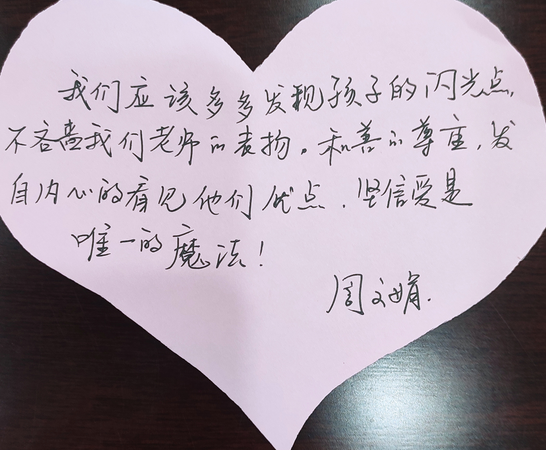 我们应该多多发现孩子的闪光点,
不吝啬我们老师的表扬。和善的尊重,发
自内心的看见他们优点.坚信爱是
唯一的魔法!
周文娟.